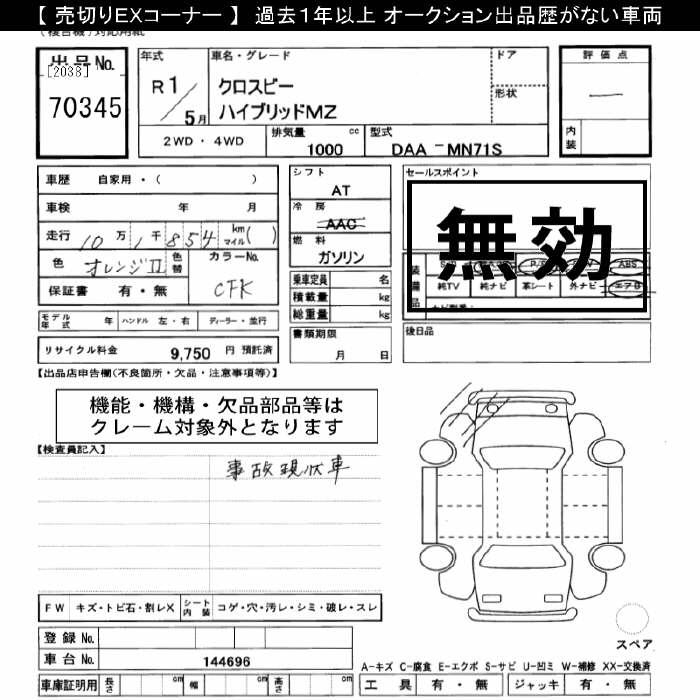 【 売切りEXコーナー 】 過去１年以上 オークション出品歴がない車両
出品No.
[2038]
70345
年式
R 1 / 5 月
車名・グレード
クロスビー
ハイブリッドMZ
ドア
形状
評価点
内装
2WD ・ 4WD
排気量 cc
1000
型式
DAA -MN71S
車歴 自家用・( )
車検 年 月
走行 10万 1千 854 km マイル ( )
色 オレンジII 色替 カラーNo. CFK
保証書 有・無
モデル年式 年 ハンドル 左・右 ディーラー・並行
リサイクル料金 9,750 円 預託済
シフト
AT
冷房
AAC
燃料
ガソリン
乗車定員 名
積載量 kg
総重量 kg
書類期限
月 日
セールスポイント
無効
ABS
純TV 純ナビ 革シート 外ナビ エアB
後日品
【出品店申告欄(不良箇所・欠品・注意事項等)】
機能・機構・欠品部品等は
クレーム対象外となります
【検査員記入】
事故現状車
FW キズ・トビ石・割レX シート内装 コゲ・穴・汚レ・シミ・破レ・スレ
登録 No.
車台 No. 144696
車庫証明用 長さ cm 幅 cm 高さ cm
スペア
A-キズ C-腐食 E-エクボ S-サビ U-凹ミ W-補修 XX-交換済
工具 有・無 ジャッキ 有・無